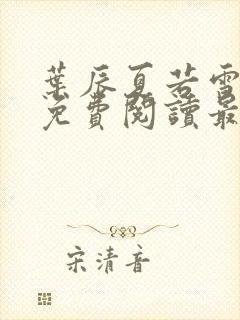 葉辰夏若雪
免費閱讀最
宋清音